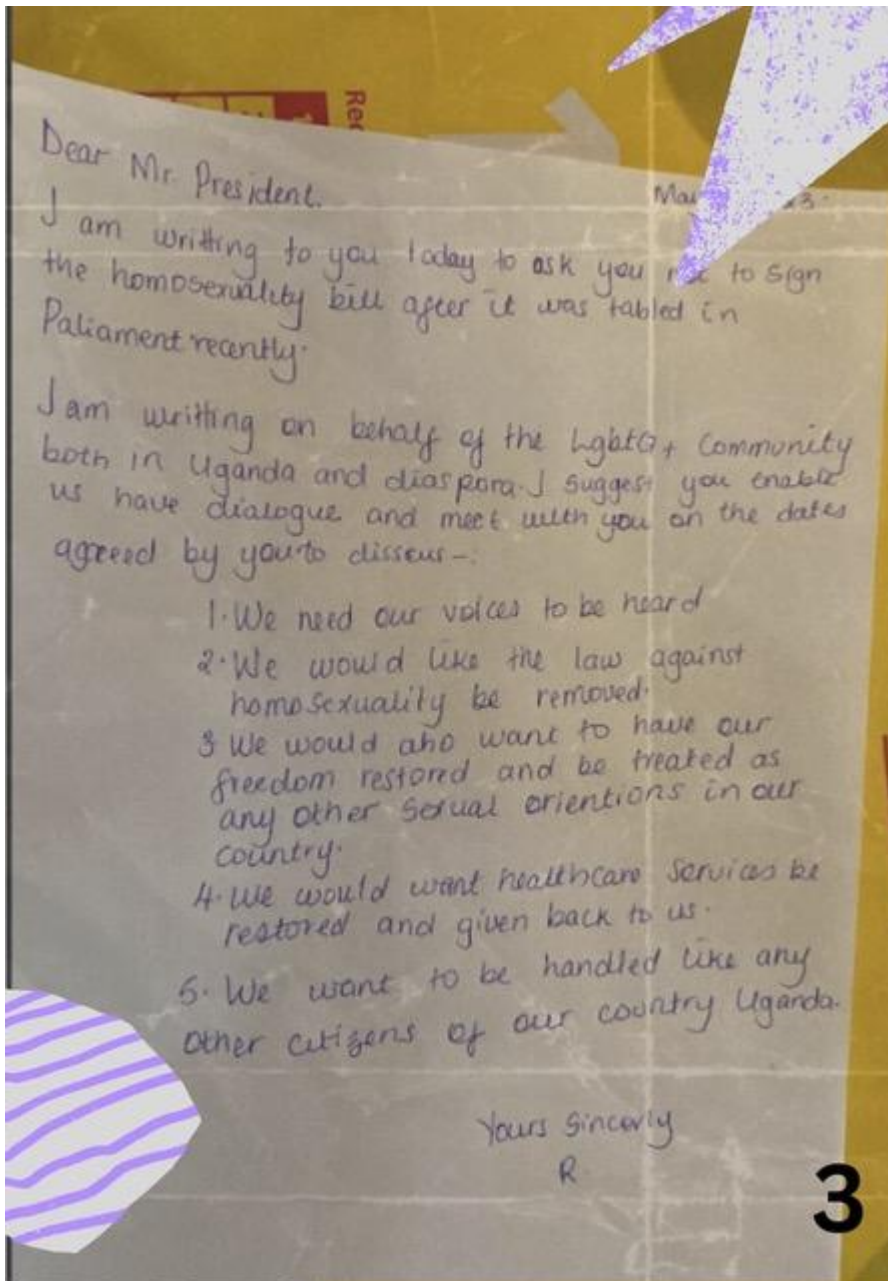 Rec
Dear Mr. President.
I am writting to you today to ask you to sign
the homosexuality bill after it was tabled in
Paliament recently.
I am writting on behalf of the LgbtQ+ Community
both in Uganda and diaspora. I suggest you enable
us have dialogue and meet with you on the dates
agreed by you to disscus -:
1. We need our voices to be heard
2. We would like the law against
homosexuality be removed.
3 We would also want to have our
freedom restored and be treated as
any other Sexual orientions in our
country.
4. We would want healthcare Services be
restored and given back to us.
5. We want to be handled like any
other citizens of our country Uganda.
Yours Sincerly
R.
3